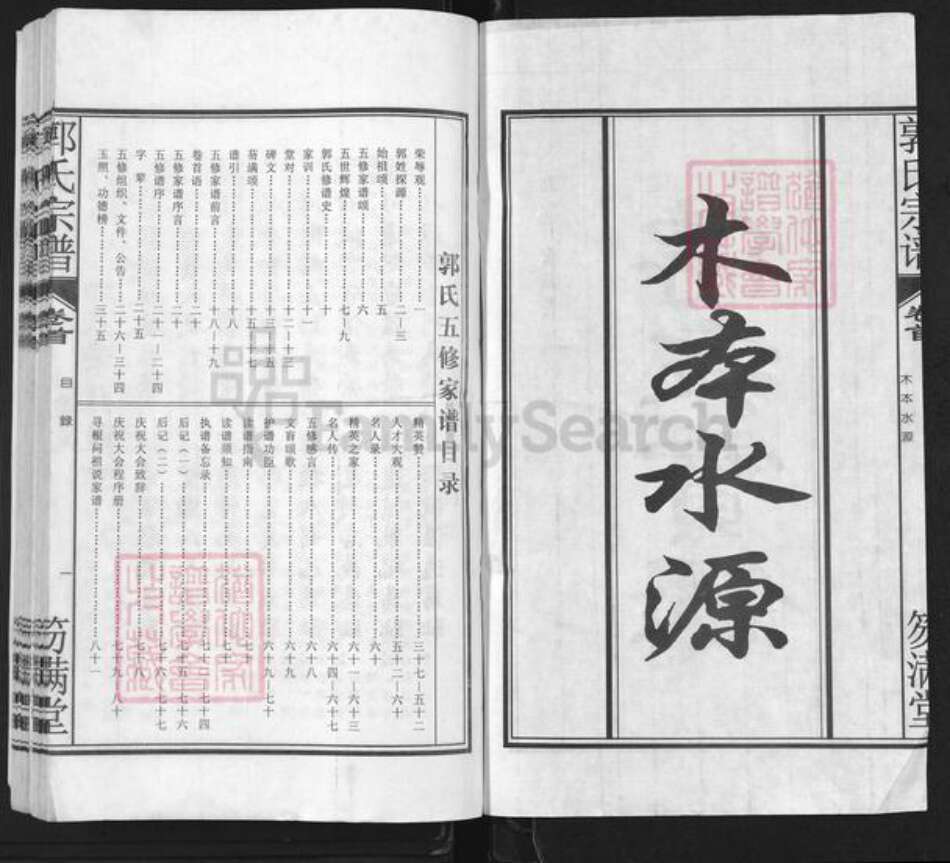 郭氏宗谱
卷首
木本水源
笏满堂
木本水源
郭氏五修家谱目录
荣辱观……一
郭姓探源……二—三
始祖颂……五
五修家谱颂……六
五世辉煌……七—九
郭氏修谱史……十
家训……十一
堂对……十二—十三
碑文……十三—十五
笏满颂……十五—十七
谱引……十八
五修家谱前言……十八—十九
卷首语……二十
五修家谱序言……二十
五修谱序……二十一—二十四
字辈……二十五
五修组织、文件、公告……二十六—三十四
玉照、功德榜……三十五
精英赞……三十七—五十二
人才大观……五十二—六十
名人录……六十
精英之家……六十一—六十三
名人传……六十四—六十七
五修感言……六十八
文盲颂歌……六十九
护谱功臣……六十九—七十
读谱指南……七十
读谱须知……七十一
执谱备忘录……七十三—七十四
后记（一）……七十五—七十六
后记（二）……七十六—七十七
庆祝大会致辞……七十八
庆祝大会程序册……七十九—八十
寻根问祖说家谱……八十一
郭氏宗谱
卷首
目录
一
笏满堂
FamilySearch